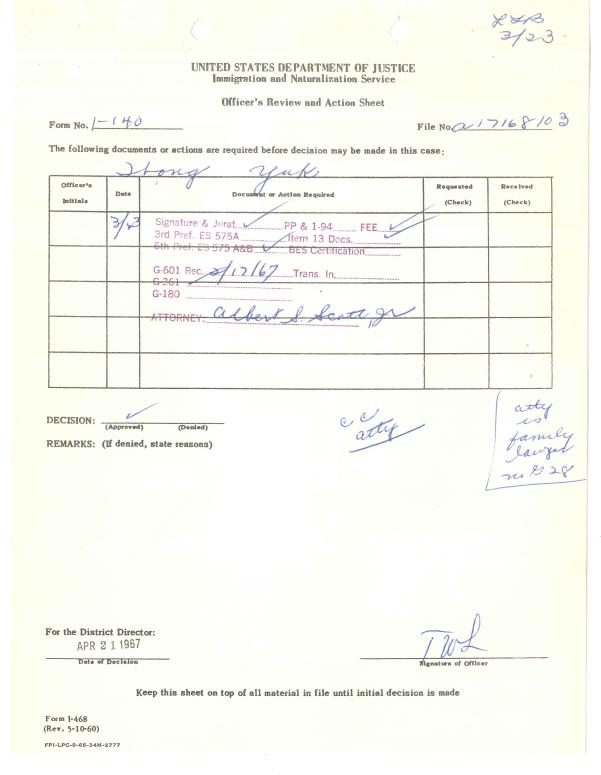 LSB
3/23
UNITED STATES DEPARTMENT OF JUSTICE
Immigration and Naturalization Service
Officer's Review and Action Sheet
Form No. I-140 File No. a17168103
The following documents or actions are required before decision may be made in this case:
Yuk
Officer's Initials Date Document or Action Required Requested (Check) Received (Check)
3/23 Signature & Jurat ✓ PP & 1-94 FEE ✓
3rd Pref. ES 575A Item 13 Docs.
6th Pref. ES 575 A&B ✓ BES Certification
G-601 Rec. 2/17/67 Trans. In
G-361
G-180
ATTORNEY: Albert S. Scott, Jr
DECISION: ✓ (Approved) (Denied)
REMARKS: (If denied, state reasons)
cc
atty
atty
is
family
lawyer
no G 28
For the District Director:
APR 21 1967
Date of Decision
TWL
Signature of Officer
Keep this sheet on top of all material in file until initial decision is made
Form I-468
(Rev. 5-10-60)
FPI-LPC-9-66-34M-2777